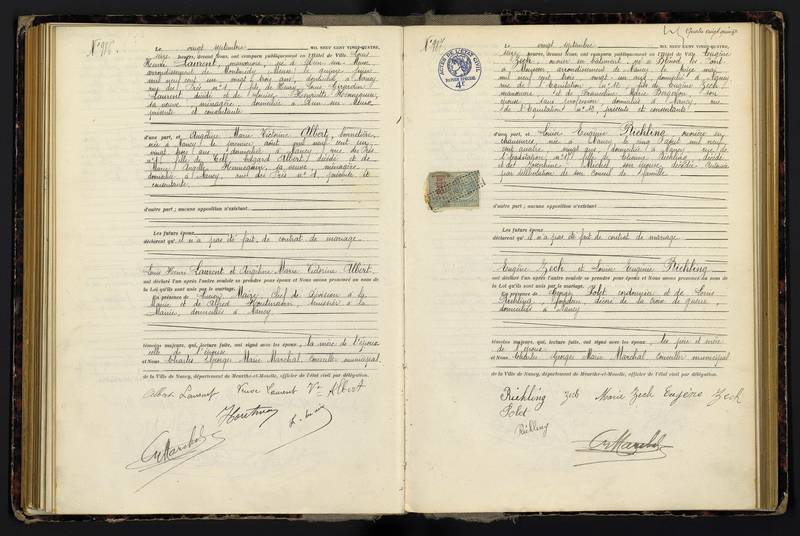 N° 916.
Le vingt septembre MIL NEUF CENT VINGT-QUATRE,
heures, devant Nous, ont comparu publiquement en l'Hôtel de Ville, Louis
Henri Laurent, manoeuvre, né à
arrondissement de Montmédy, Meuse, le
mil neuf cent vingt trois ans, domicilié à Nancy,
rue des Prés n° 1, fils de Henri Louis
Laurent, décédé et de Louise Henriette
sa veuve, ménagère, domiciliée à Dun sur Meuse,
présente et consentante
d'une part, et Angéline Marie Victorine Albert, bonnetière,
née à Nancy le premier août mil neuf cent un,
vingt trois ans, domiciliée à Nancy, rue des Prés
n° 1, fille de Edgard Albert, décédé et de
Marie Angèle Hennequin, sa veuve, ménagère,
domiciliée à Nancy, rue des Prés n° 1, présente et
consentante,
d'autre part ; aucune opposition n'existant
Les futurs époux
déclarent qu'il n'a pas été fait de contrat de mariage
Louis Henri Laurent et Angéline Marie Victorine Albert,
ont déclaré l'un après l'autre vouloir se prendre pour époux et Nous avons prononcé au nom de
la Loi qu'ils sont unis par le mariage.
En présence de Lucien Maize, Chef de Division à la
Mairie et de Alfred Houtmann, huissier à la
Mairie, domiciliés à Nancy
témoins majeurs, qui, lecture faite, ont signé avec les époux, la mère de l'époux
celle de l'épouse
et Nous Charles Georges Marie Marchal, conseiller municipal
de la Ville de Nancy, département de Meurthe-et-Moselle, officier de l'état civil par délégation.
Albert Laurent Veuve Laurent Vve Albert
Houtmann
Marchal
N° 917.
Quatre vingt onze
Le vingt septembre MIL NEUF CENT VINGT-QUATRE,
heures, devant Nous, ont comparu publiquement en l'Hôtel de Ville, Eugène
Zech, ouvrier en bâtiment, né à Blénod les Pont
à Mousson, arrondissement de Nancy, le
mil neuf cent trois, vingt un ans, domicilié à Nancy,
rue de l'Equitation n° 10, fils de Eugène Zech,
manoeuvre, et de Marie son
épouse, sans profession, domiciliés à Nancy, rue
de l'Equitation n° 10, présents et consentants
d'une part, et Louise Eugénie Richling, ouvrière en
chaussures, née à Nancy, le cinq août mil neuf
cent quatre, vingt ans, domiciliée à Nancy, rue de
fille de Richling, décédé
et de Michel, son épouse, décédée,
par délibération de son Conseil de famille
d'autre part ; aucune opposition n'existant
Les futurs époux
déclarent qu'il n'a pas été fait de contrat de mariage
Eugène Zech et Louise Eugénie Richling
ont déclaré l'un après l'autre vouloir se prendre pour époux et Nous avons prononcé au nom de
la Loi qu'ils sont unis par le mariage.
En présence de Polet, cordonnier et de Louis
Richling, décoré de la croix de guerre,
domiciliés à Nancy
témoins majeurs, qui, lecture faite, ont signé avec les époux, les père et mère
de l'époux
et Nous Charles Georges Marie Marchal, conseiller municipal
de la Ville de Nancy, département de Meurthe-et-Moselle, officier de l'état civil par délégation.
Richling Zech Marie Zech Eugène Zech
Polet
Richling
Marchal